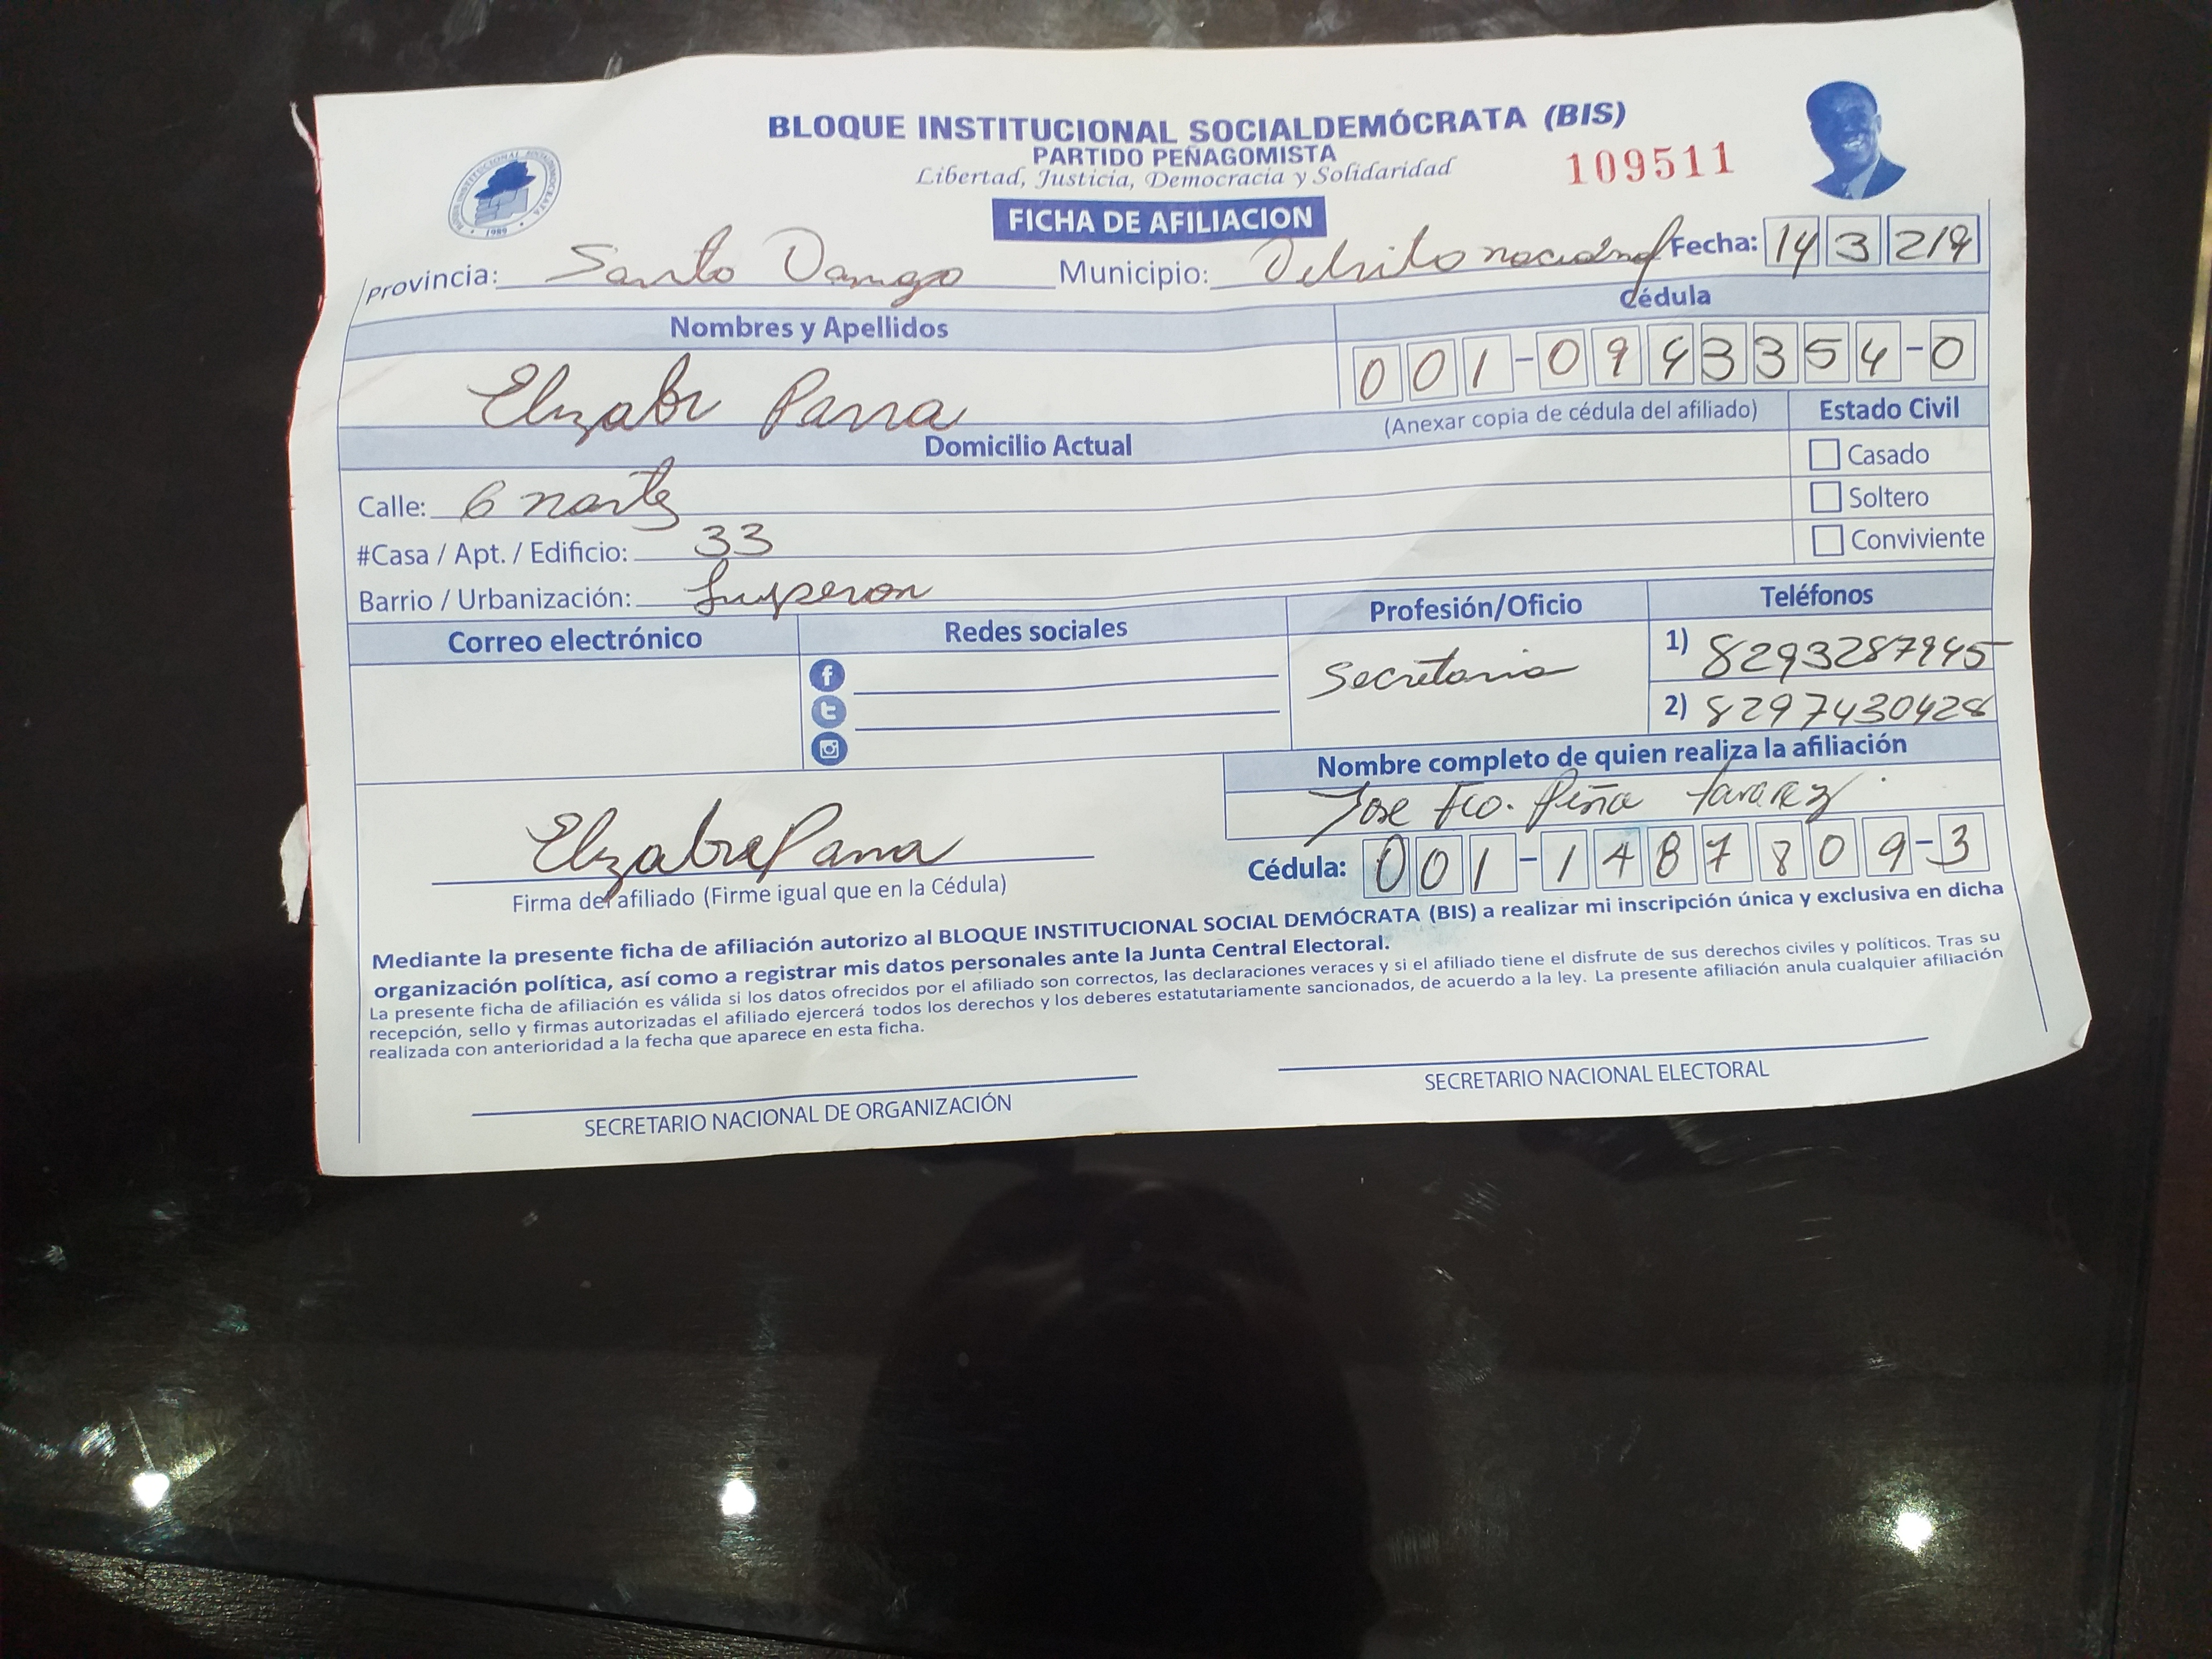 BLOQUE INSTITUCIONAL SOCIALDEMÓCRATA (BIS)
PARTIDO PEÑAGOMISTA
Libertad, Justicia, Democracia y Solidaridad
109511
BLOQUE INSTITUCIONAL SOCIALDEMOCRATA
1989
FICHA DE AFILIACION
Provincia: Santo Domgo Municipio: nacional Fecha: 14 3 219
Nombres y Apellidos Cédula
Parra 001-0943354-0
(Anexar copia de cédula del afiliado) Estado Civil
Domicilio Actual
Casado
Calle: 6 norte Soltero
#Casa / Apt. / Edificio: 33 Conviviente
Barrio / Urbanización: Luperon
Correo electrónico Redes sociales Profesión/Oficio Teléfonos
Secretaria 1) 8293287945
2) 8297430428
Nombre completo de quien realiza la afiliación
Jose Fco. Peña Tavarez
Parra
Firma del afiliado (Firme igual que en la Cédula) Cédula: 001-1487809-3
Mediante la presente ficha de afiliación autorizo al BLOQUE INSTITUCIONAL SOCIAL DEMÓCRATA (BIS) a realizar mi inscripción única y exclusiva en dicha
organización política, así como a registrar mis datos personales ante la Junta Central Electoral.
La presente ficha de afiliación es válida si los datos ofrecidos por el afiliado son correctos, las declaraciones veraces y si el afiliado tiene el disfrute de sus derechos civiles y políticos. Tras su
recepción, sello y firmas autorizadas el afiliado ejercerá todos los derechos y los deberes estatutariamente sancionados, de acuerdo a la ley. La presente afiliación anula cualquier afiliación
realizada con anterioridad a la fecha que aparece en esta ficha.
SECRETARIO NACIONAL DE ORGANIZACIÓN SECRETARIO NACIONAL ELECTORAL